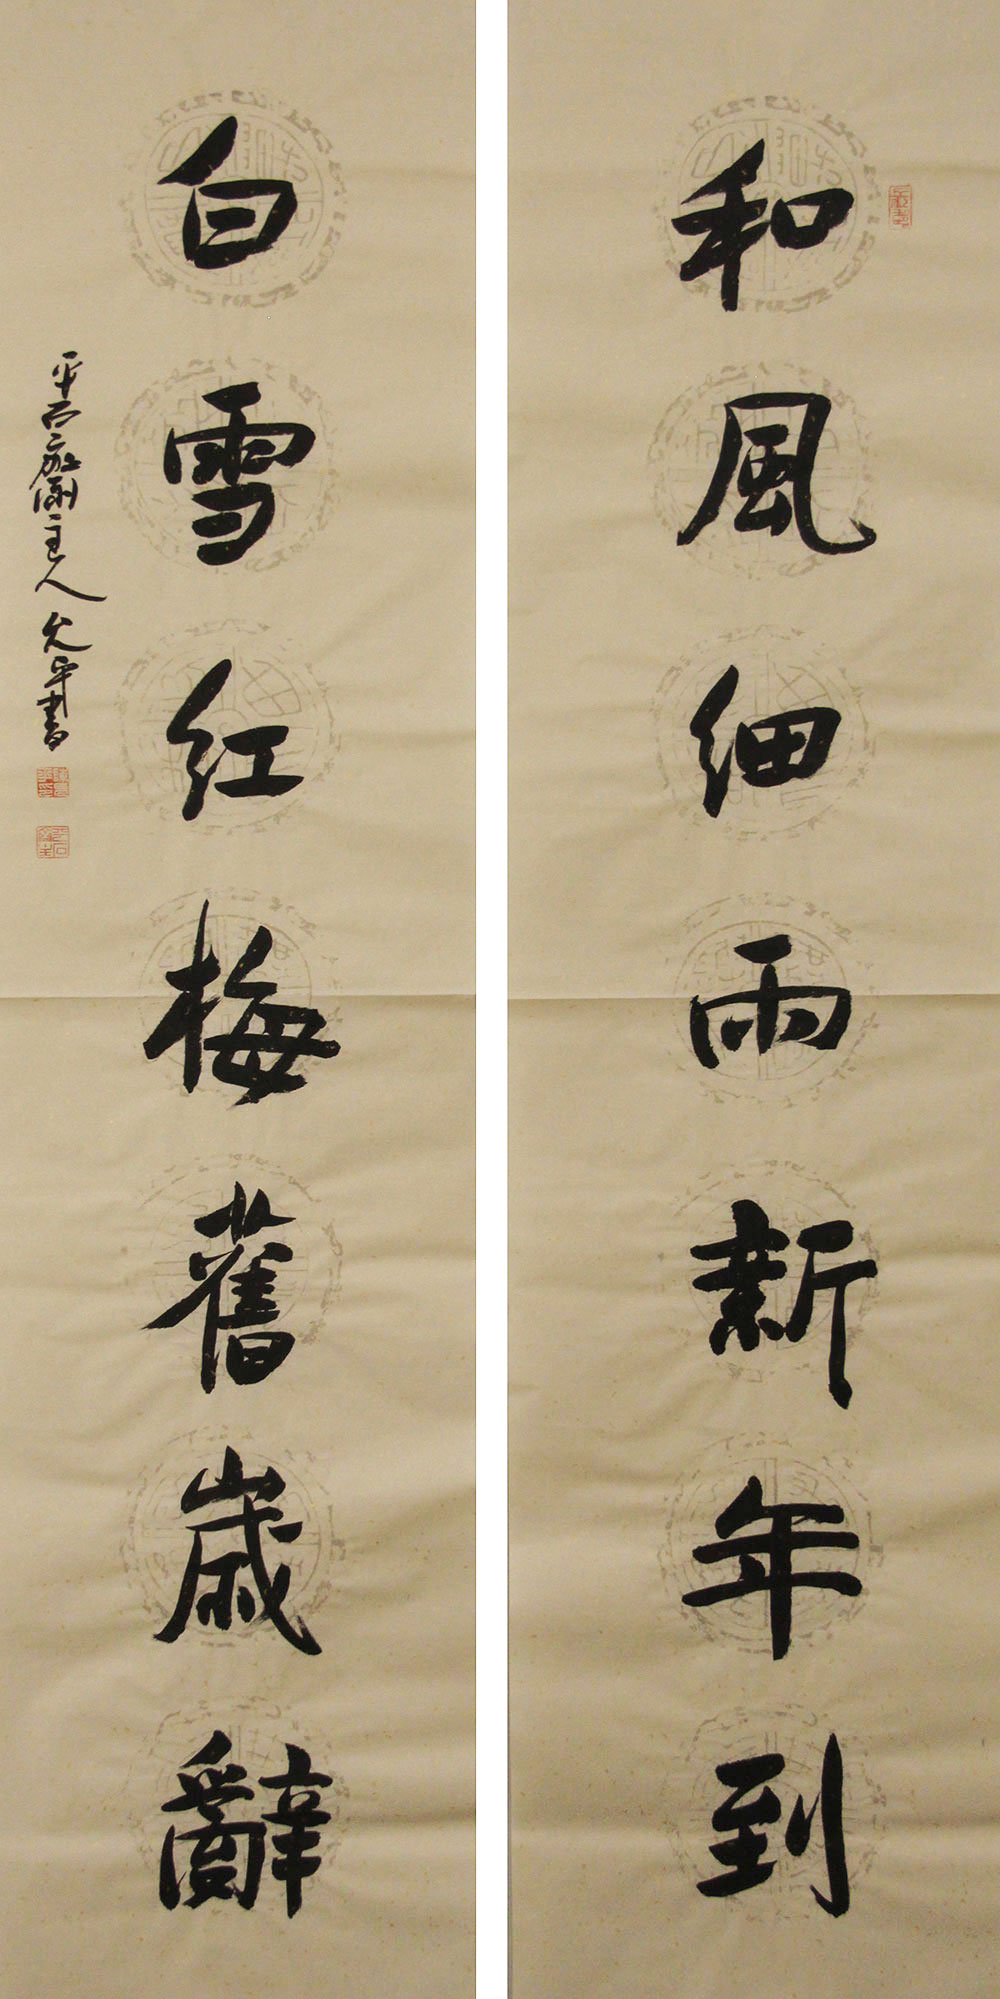 和風細雨新年到
白雪红梅舊歲辭
主人允平書